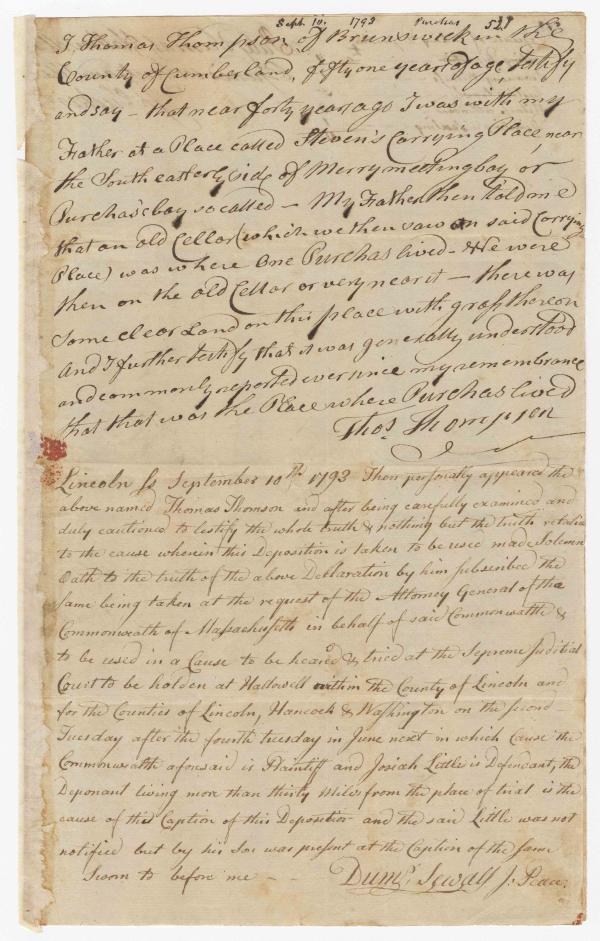 Sept. 10. 1793 Purchas 529
I Thomas Thompson of Brunswick in the
County of Cumberland, fifty one years of age, testify
and say – that near forty years ago I was with my
Father at a Place called Steven's Carrying Place near
the South easterly side of Merrymeeting bay or
Purchas'ebay so called – My Father then told me
that an old Cellar (which we then saw on said Carrying
Place) was where One Purchas lived – We were
then on the old Cellar or very near it – there was
some clear Land on this place with grass thereon
And I further testify that it was generally understood
and commonly reported ever since my remembrance
that that was the Place where Purchas lived
Thos. Thompson
Lincoln Ss September 10th 1793 Then personally appeared the
above named Thomas Thomson and after being carefully examined and
duly cautioned to testify the whole truth & nothing but the truth relative
to the cause wherein this Deposition is taken to be used made Solemn
Oath to the truth of the above Declaration by him subscribed the
same being taken at the request of the Attorney General of the
Commonwealth of Massachusetts in behalf of said Commonwealth &
to be used in a Cause to be heard & tried at the Supreme Judicial
Court to be holden at Hallowell within the County of Lincoln and
for the Counties of Lincoln, Hancock & Washington on the second
Tuesday after the fourth tuesday in June next in which Cause the
Commonwealth aforesaid is Plaintiff and Josiah Little is Defendant, the
Deponant living more than thirty Miles from the place of trial is the
cause of the Caption of this Deposition and the said Little was not
notified but by his Son was present at the Caption of the same
Sworn to before me – Dumr. Sewall J: Peace.